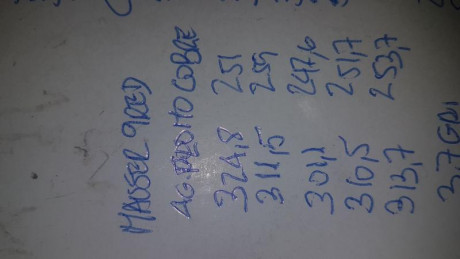 MAISSER 9RED
AG. PALO HO COBRE
324,8 251
311,5 259
301,1 247,6
310,5 251,7
313,7 253,7
3,7 GR